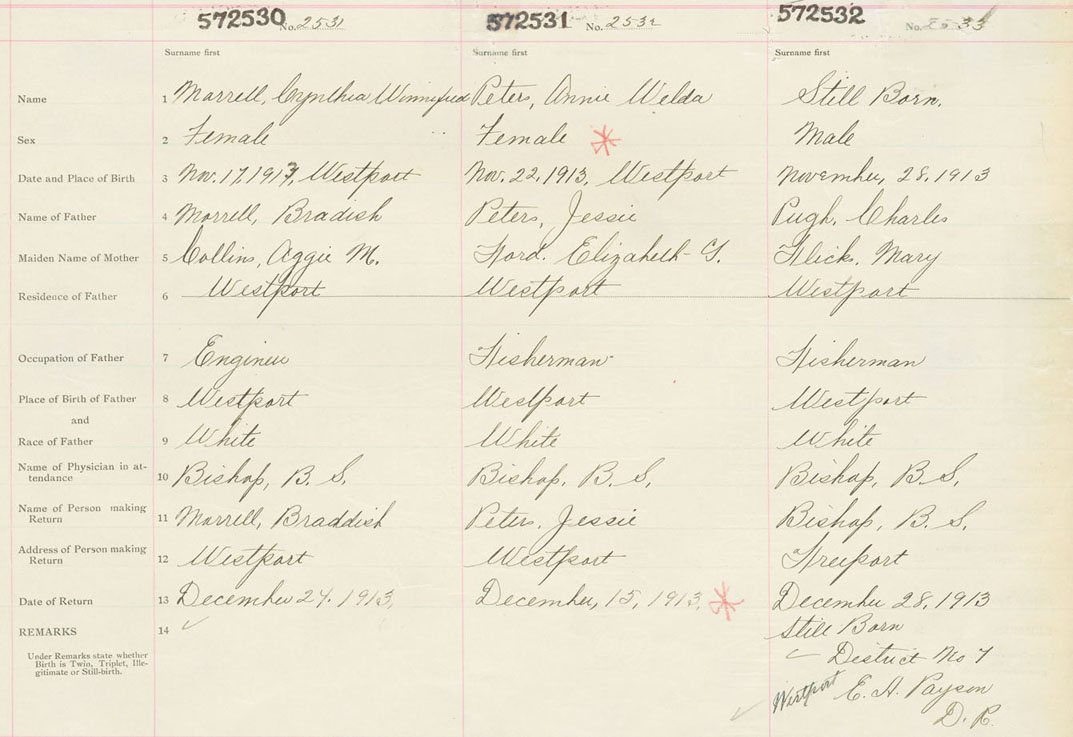 572530 No. 2531 572531 No. 2532 572532 No. 2533
Surname first Surname first Surname first
Name 1 Morrell, Cynthia Winnifred Peters, Annie Welda Still Born.
Sex 2 Female Female Male
Date and Place of Birth 3 Nov. 17, 1913, Westport Nov. 22, 1913, Westport November, 28, 1913
Name of Father 4 Morrell, Bradish Peters, Jessie Pugh, Charles
Maiden Name of Mother 5 Collins, Aggie M. Ford. Elizabeth G. Flick, Mary
Residence of Father 6 Westport Westport Westport
Occupation of Father 7 Engineer Fisherman Fisherman
Place of Birth of Father 8 Westport Westport Westport
and
Race of Father 9 White White White
Name of Physician in at-
tendance 10 Bishop, B. S. Bishop, B. S. Bishop, B. S.
Name of Person making
Return 11 Morrell, Braddish Peters, Jessie Bishop, B. S.
Address of Person making
Return 12 Westport Westport Freeport
Date of Return 13 December 24, 1913. December, 15, 1913. December 28, 1913
REMARKS 14 Still Born
Under Remarks state whether
Birth is Twin, Triplet, Ille-
gitimate or Still-birth.
District No 7
Westport E. H. Payson
D. R.